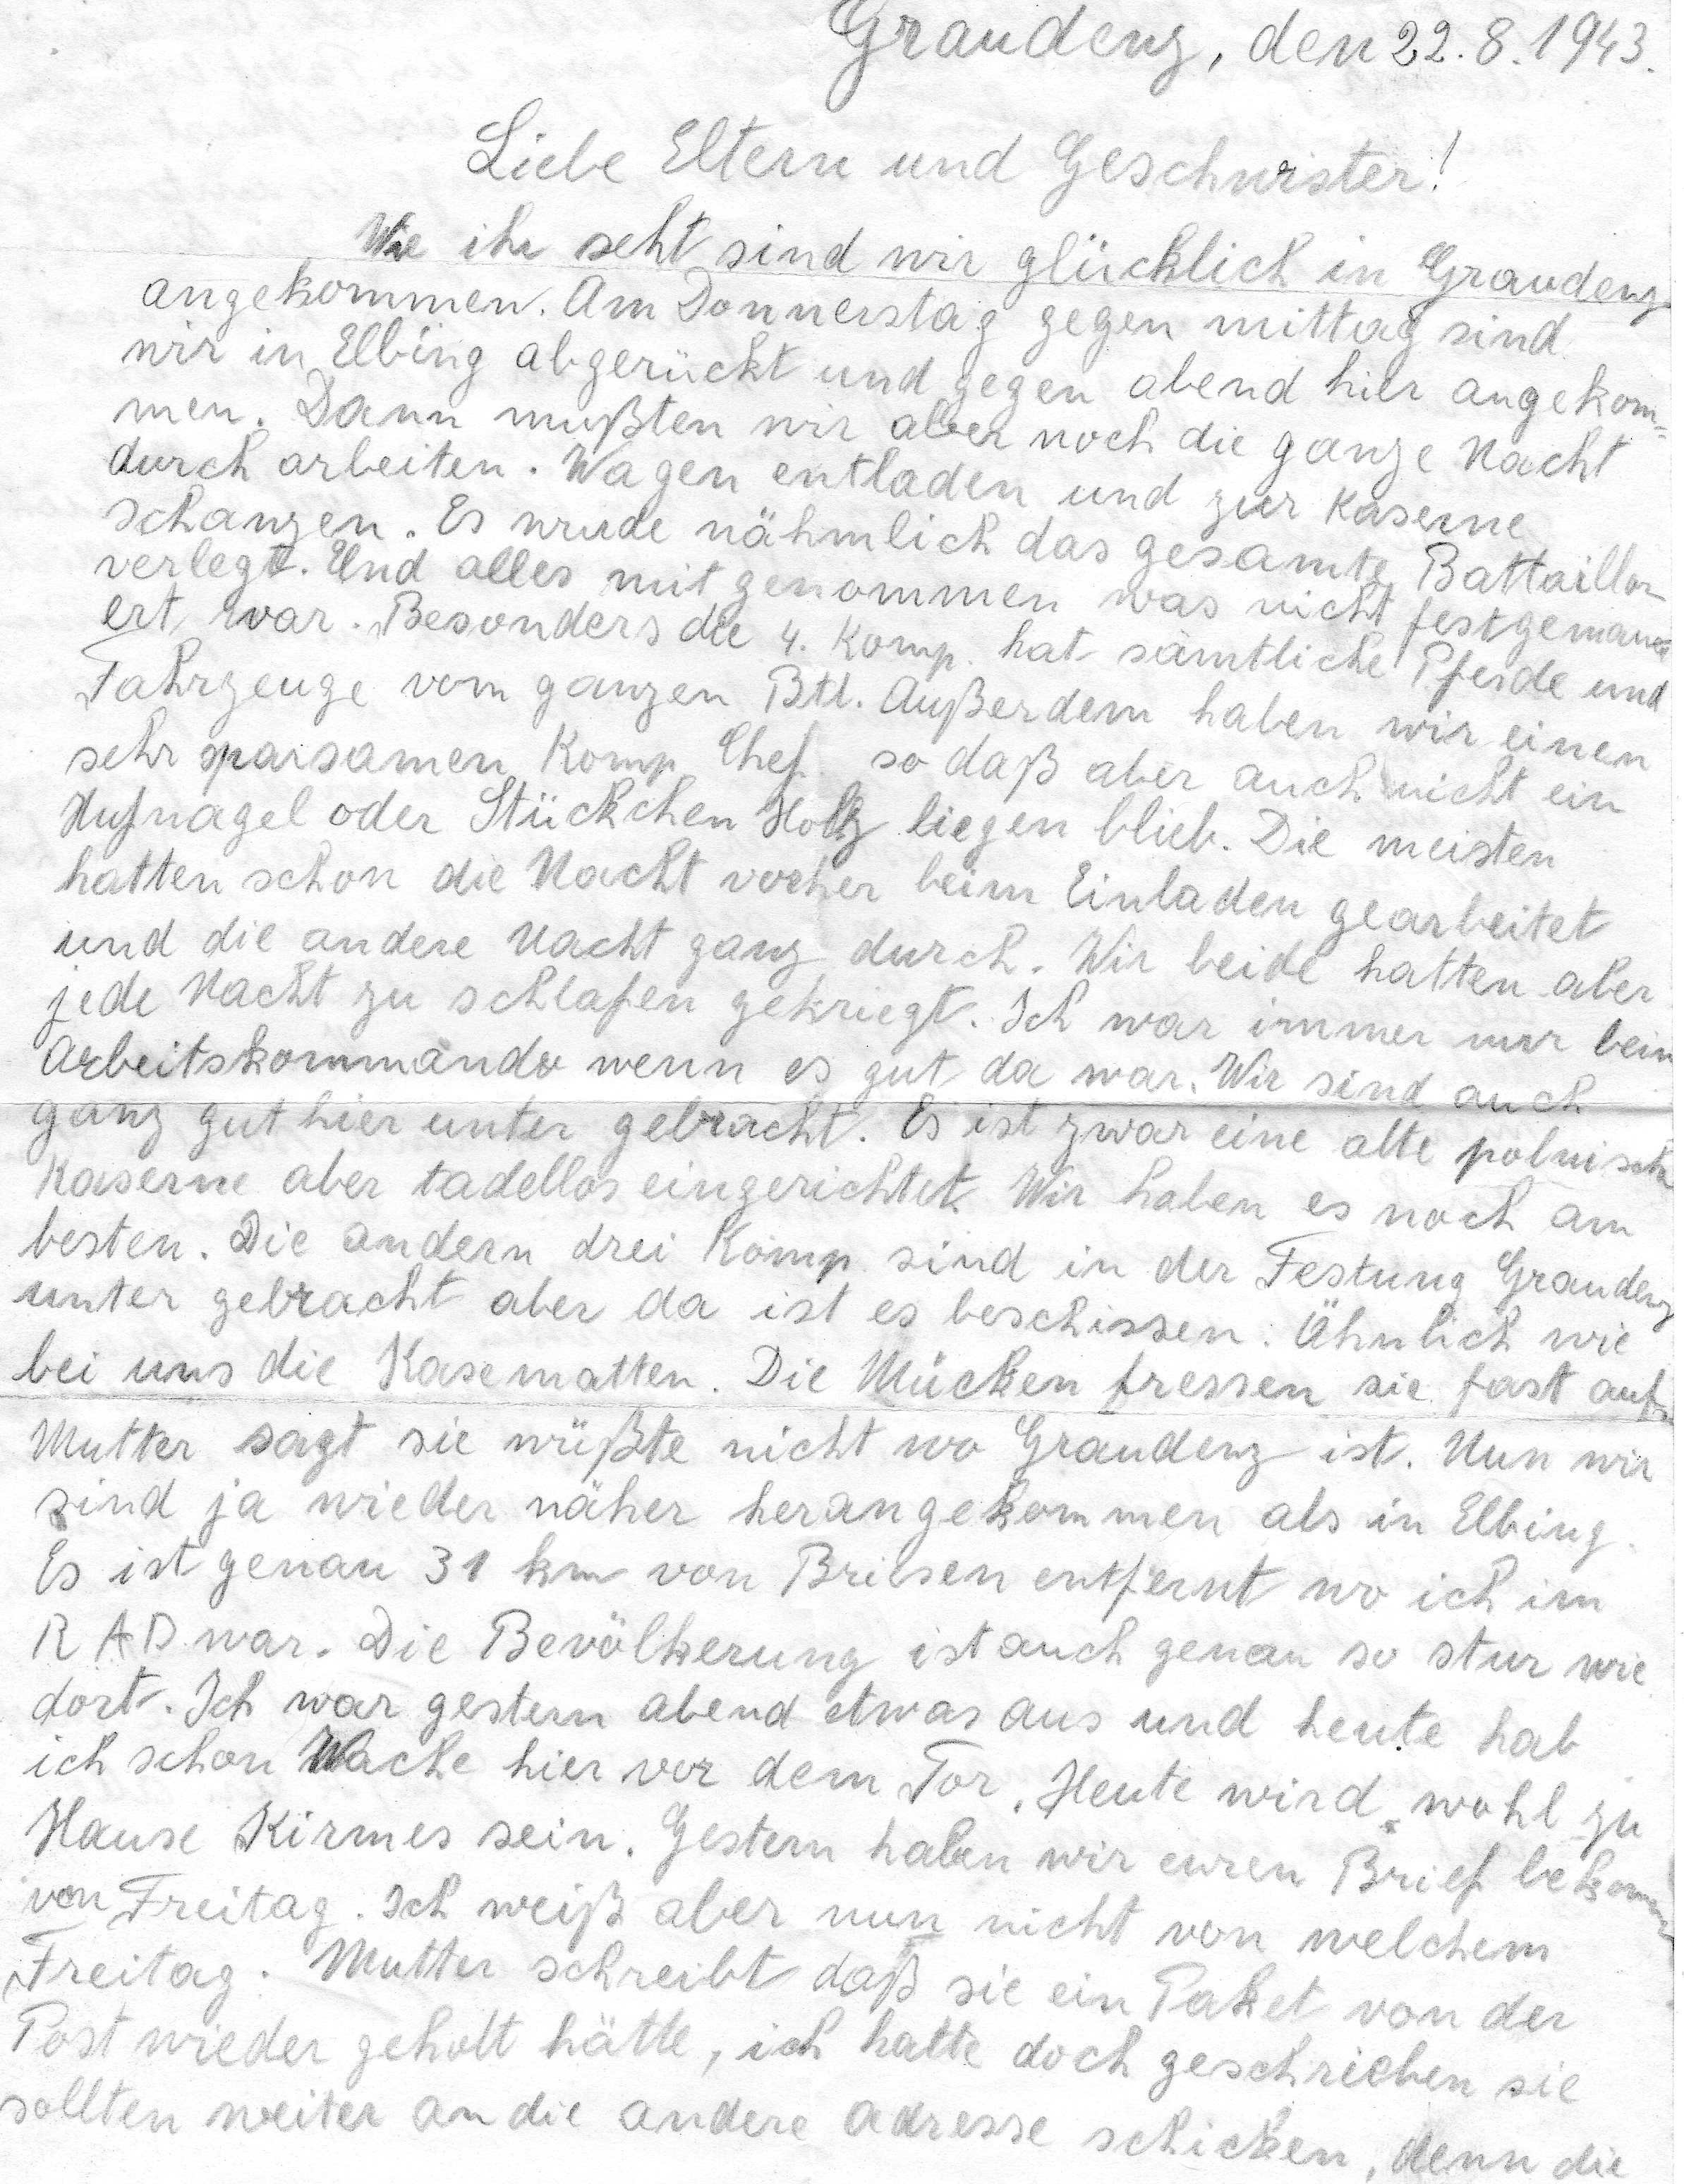 Graudenz, den 22.8.1943.
Liebe Eltern und Geschwister!
Wie ihr seht sind wir glücklich in Graudenz
angekommen. Am Donnerstag gegen mittag sind
wir in Elbing abgerückt und gegen abend hier angekom=
men. Dann mußten wir aber noch die ganze Nacht
durch arbeiten. Wagen entladen und zur Kaserne
schanzen. Es wrude nähmlich das gesamte Battaillon
verlegt. Und alles mit genommen was nicht festgemau
ert war. Besonders die 4. Komp. hat sämtliche Pferde und
Fahrzeuge vom ganzen Btl. Außerdem haben wir einen
sehr sparsamen Komp Chef. so daß aber auch nicht ein
Hufnagel oder Stückchen Holz liegen blieb. Die meisten
hatten schon die Nacht vorher beim Einladen gearbeitet
und die andere Nacht ganz durch. Wir beide hatten aber
jede Nacht zu schlafen gekriegt. Ich war immer nur beim
Arbeitskommando wenn es gut da war. Wir sind auch
ganz gut hier unter gebracht. Es ist zwar eine alte polnische
Kaserne aber tadellos eingerichtet. Wir haben es noch am
besten. Die andern drei Komp. sind in der Festung Graudenz
unter gebracht aber da ist es beschissen. Ähnlich wie
bei uns die Kasematten. Die Mücken fressen sie fast auf.
Mutter sagt sie wüßte nicht wo Graudenz ist. Nun wir
sind ja wieder näher herangekommen als in Elbing.
Es ist genau 31 km von Briesen entfernt wo ich im
RAD war. Die Bevölkerung ist auch genau so stur wie
dort. Ich war gestern abend etwas aus und heute hab
ich schon Wache hier vor dem Tor. Heute wird wohl zu
Hause Kirmes sein. Gestern haben wir euren Brief bekommen
von Freitag. Ich weiß aber nun nicht von welchem
Freitag. Mutter schreibt daß sie ein Paket von der
Post wieder geholt hätte, ich hatte doch geschrieben sie
sollten weiter an die andere Adresse schicken, denn die